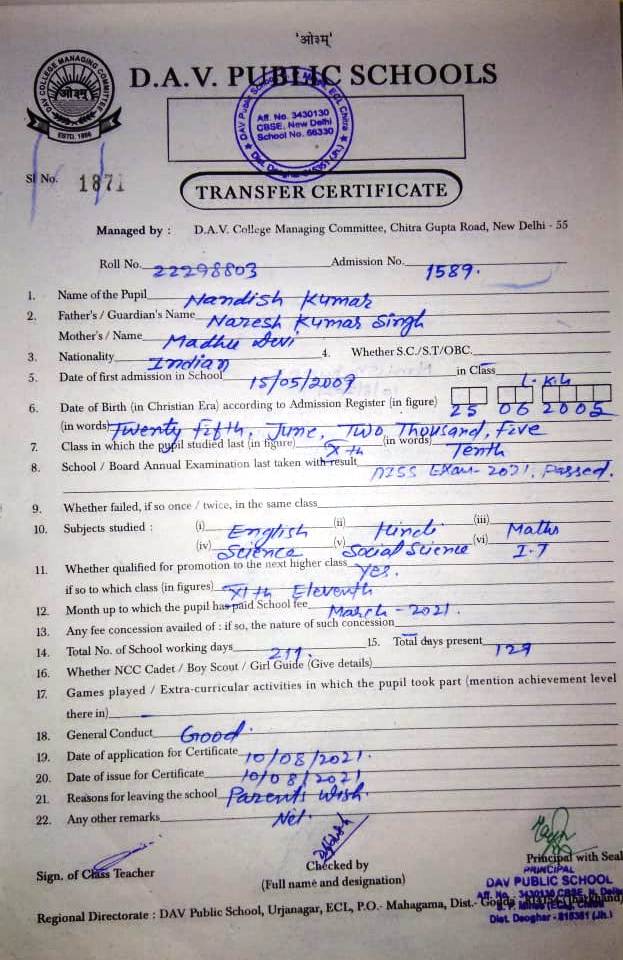 'ओ३म्'
D.A.V. PUBLIC SCHOOLS
DAV COLLEGE MANAGING COMMITTEE
ओ३म्
ESTD. 1886
Aff. No. 3430130
CBSE, New Delhi
School No. 66330
Sl No. 1871
TRANSFER CERTIFICATE
Managed by : D.A.V. College Managing Committee, Chitra Gupta Road, New Delhi - 55
Roll No. 22298803 Admission No. 1589.
1. Name of the Pupil Nandish Kumar
2. Father's / Guardian's Name Naresh Kumar Singh
Mother's / Name Madhu Devi
3. Nationality Indian 4. Whether S.C./S.T/OBC.
5. Date of first admission in School 15/05/2009 in Class L.K.G
6. Date of Birth (in Christian Era) according to Admission Register (in figure) 25 06 2005
(in words) Twenty fifth, June, Two Thousand, five
7. Class in which the pupil studied last (in figure) Xth (in words) Tenth
8. School / Board Annual Examination last taken with result AISS Exam-2021. Passed.
9. Whether failed, if so once / twice, in the same class
10. Subjects studied : (i) English (ii) Hindi (iii) Maths
(iv) Science (v) Social Science (vi) I.T
11. Whether qualified for promotion to the next higher class Yes.
if so to which class (in figures) XIth Eleventh
12. Month up to which the pupil has paid School fee March-2021.
13. Any fee concession availed of : if so, the nature of such concession
14. Total No. of School working days 211. 15. Total days present 129
16. Whether NCC Cadet / Boy Scout / Girl Guide (Give details)
17. Games played / Extra-curricular activities in which the pupil took part (mention achievement level
there in) -
18. General Conduct Good.
19. Date of application for Certificate 10/08/2021.
20. Date of issue for Certificate 10/08/2021
21. Reasons for leaving the school Parents Wish.
22. Any other remarks Nil.
Sign. of Class Teacher
Checked by
(Full name and designation)
Principal with Seal
PRINCIPAL
DAV PUBLIC SCHOOL
Aff. No. - 3430130 CBSE, N. Delhi
Dist. Deoghar - 815351 (Jh.)
Regional Directorate : DAV Public School, Urjanagar, ECL, P.O.- Mahagama, Dist.- Godda - 814154 (Jharkhand)